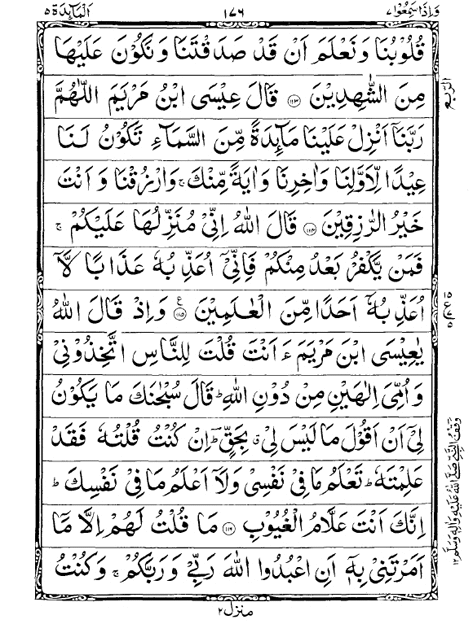 المآئدة ٥ ١٧٦ وَاِذَاسَمِعُوْا ٧
قُلُوْبُنَا وَنَعْلَمَ اَنْ قَدْ صَدَقْتَنَا وَنَكُوْنَ عَلَيْهَا
مِنَ الشّٰهِدِيْنَ ﴿١١٣﴾ قَالَ عِيْسَى ابْنُ مَرْيَمَ اللّٰهُمَّ
رَبَّنَآ اَنْزِلْ عَلَيْنَا مَآىِٕدَةً مِّنَ السَّمَآءِ تَكُوْنُ لَنَا
عِيْدًا لِّاَوَّلِنَا وَاٰخِرِنَا وَاٰيَةً مِّنْكَ ۚ وَارْزُقْنَا وَاَنْتَ
خَيْرُ الرّٰزِقِيْنَ ﴿١١٤﴾ قَالَ اللّٰهُ اِنِّيْ مُنَزِّلُهَا عَلَيْكُمْ ۚ
فَمَنْ يَّكْفُرْ بَعْدُ مِنْكُمْ فَاِنِّيْٓ اُعَذِّبُهٗ عَذَابًا لَّآ
اُعَذِّبُهٗٓ اَحَدًا مِّنَ الْعٰلَمِيْنَ ﴿١١٥﴾ ع وَاِذْ قَالَ اللّٰهُ
يٰعِيْسَى ابْنَ مَرْيَمَ ءَاَنْتَ قُلْتَ لِلنَّاسِ اتَّخِذُوْنِيْ
وَاُمِّيَ اِلٰهَيْنِ مِنْ دُوْنِ اللّٰهِ ۗ قَالَ سُبْحٰنَكَ مَا يَكُوْنُ
لِيْٓ اَنْ اَقُوْلَ مَا لَيْسَ لِيْ ۗ بِحَقٍّ ۗ اِنْ كُنْتُ قُلْتُهٗ فَقَدْ
عَلِمْتَهٗ ۗ تَعْلَمُ مَا فِيْ نَفْسِيْ وَلَآ اَعْلَمُ مَا فِيْ نَفْسِكَ ۗ
اِنَّكَ اَنْتَ عَلَّامُ الْغُيُوْبِ ﴿١١٦﴾ مَا قُلْتُ لَهُمْ اِلَّا مَآ
اَمَرْتَنِيْ بِهٖٓ اَنِ اعْبُدُوا اللّٰهَ رَبِّيْ وَرَبَّكُمْ ۚ وَكُنْتُ
منزل ٢
الربع
وقف النبي صلى الله عليه واله وسلم ١٢